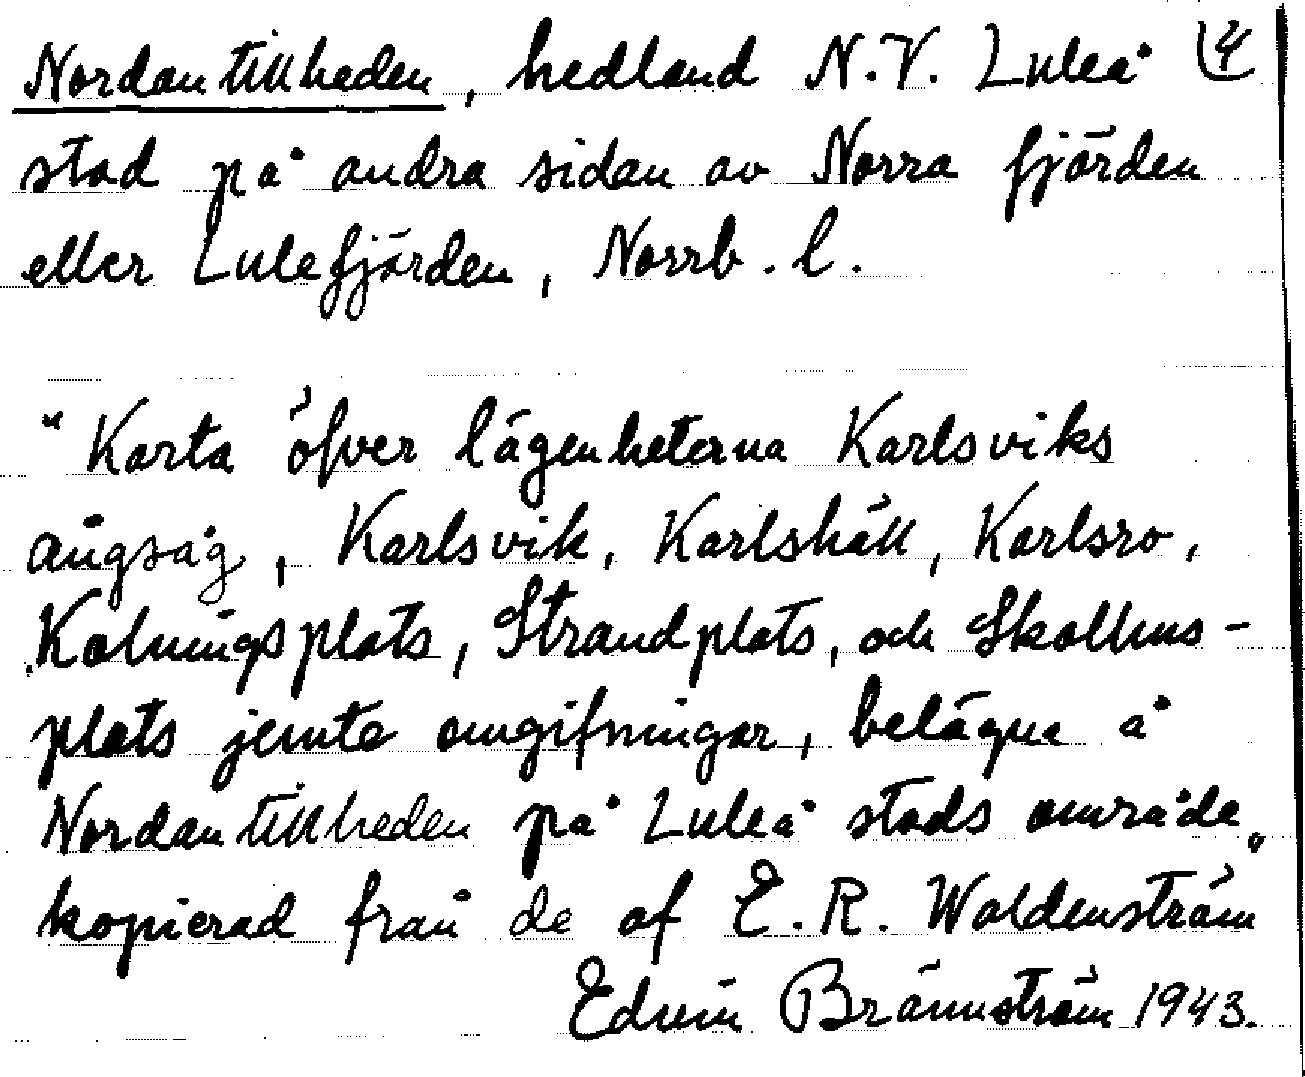 Nordantillheden, hedland N.V. Luleå 4
stad på andra sidan av Norra fjärden
eller Lulefjärden, Norrb. l.
"Karta öfver lägenheterna Karlsviks
ångsåg, Karlsvik, Karlshäll, Karlsro,
Kolningsplats, Strandplats, och Skollhus-
plats jemte omgifningar, belägne å
Nordantillheden på Luleå stads område"
kopierad från de af E. R. Waldenström
Edvin Brännström 1943.